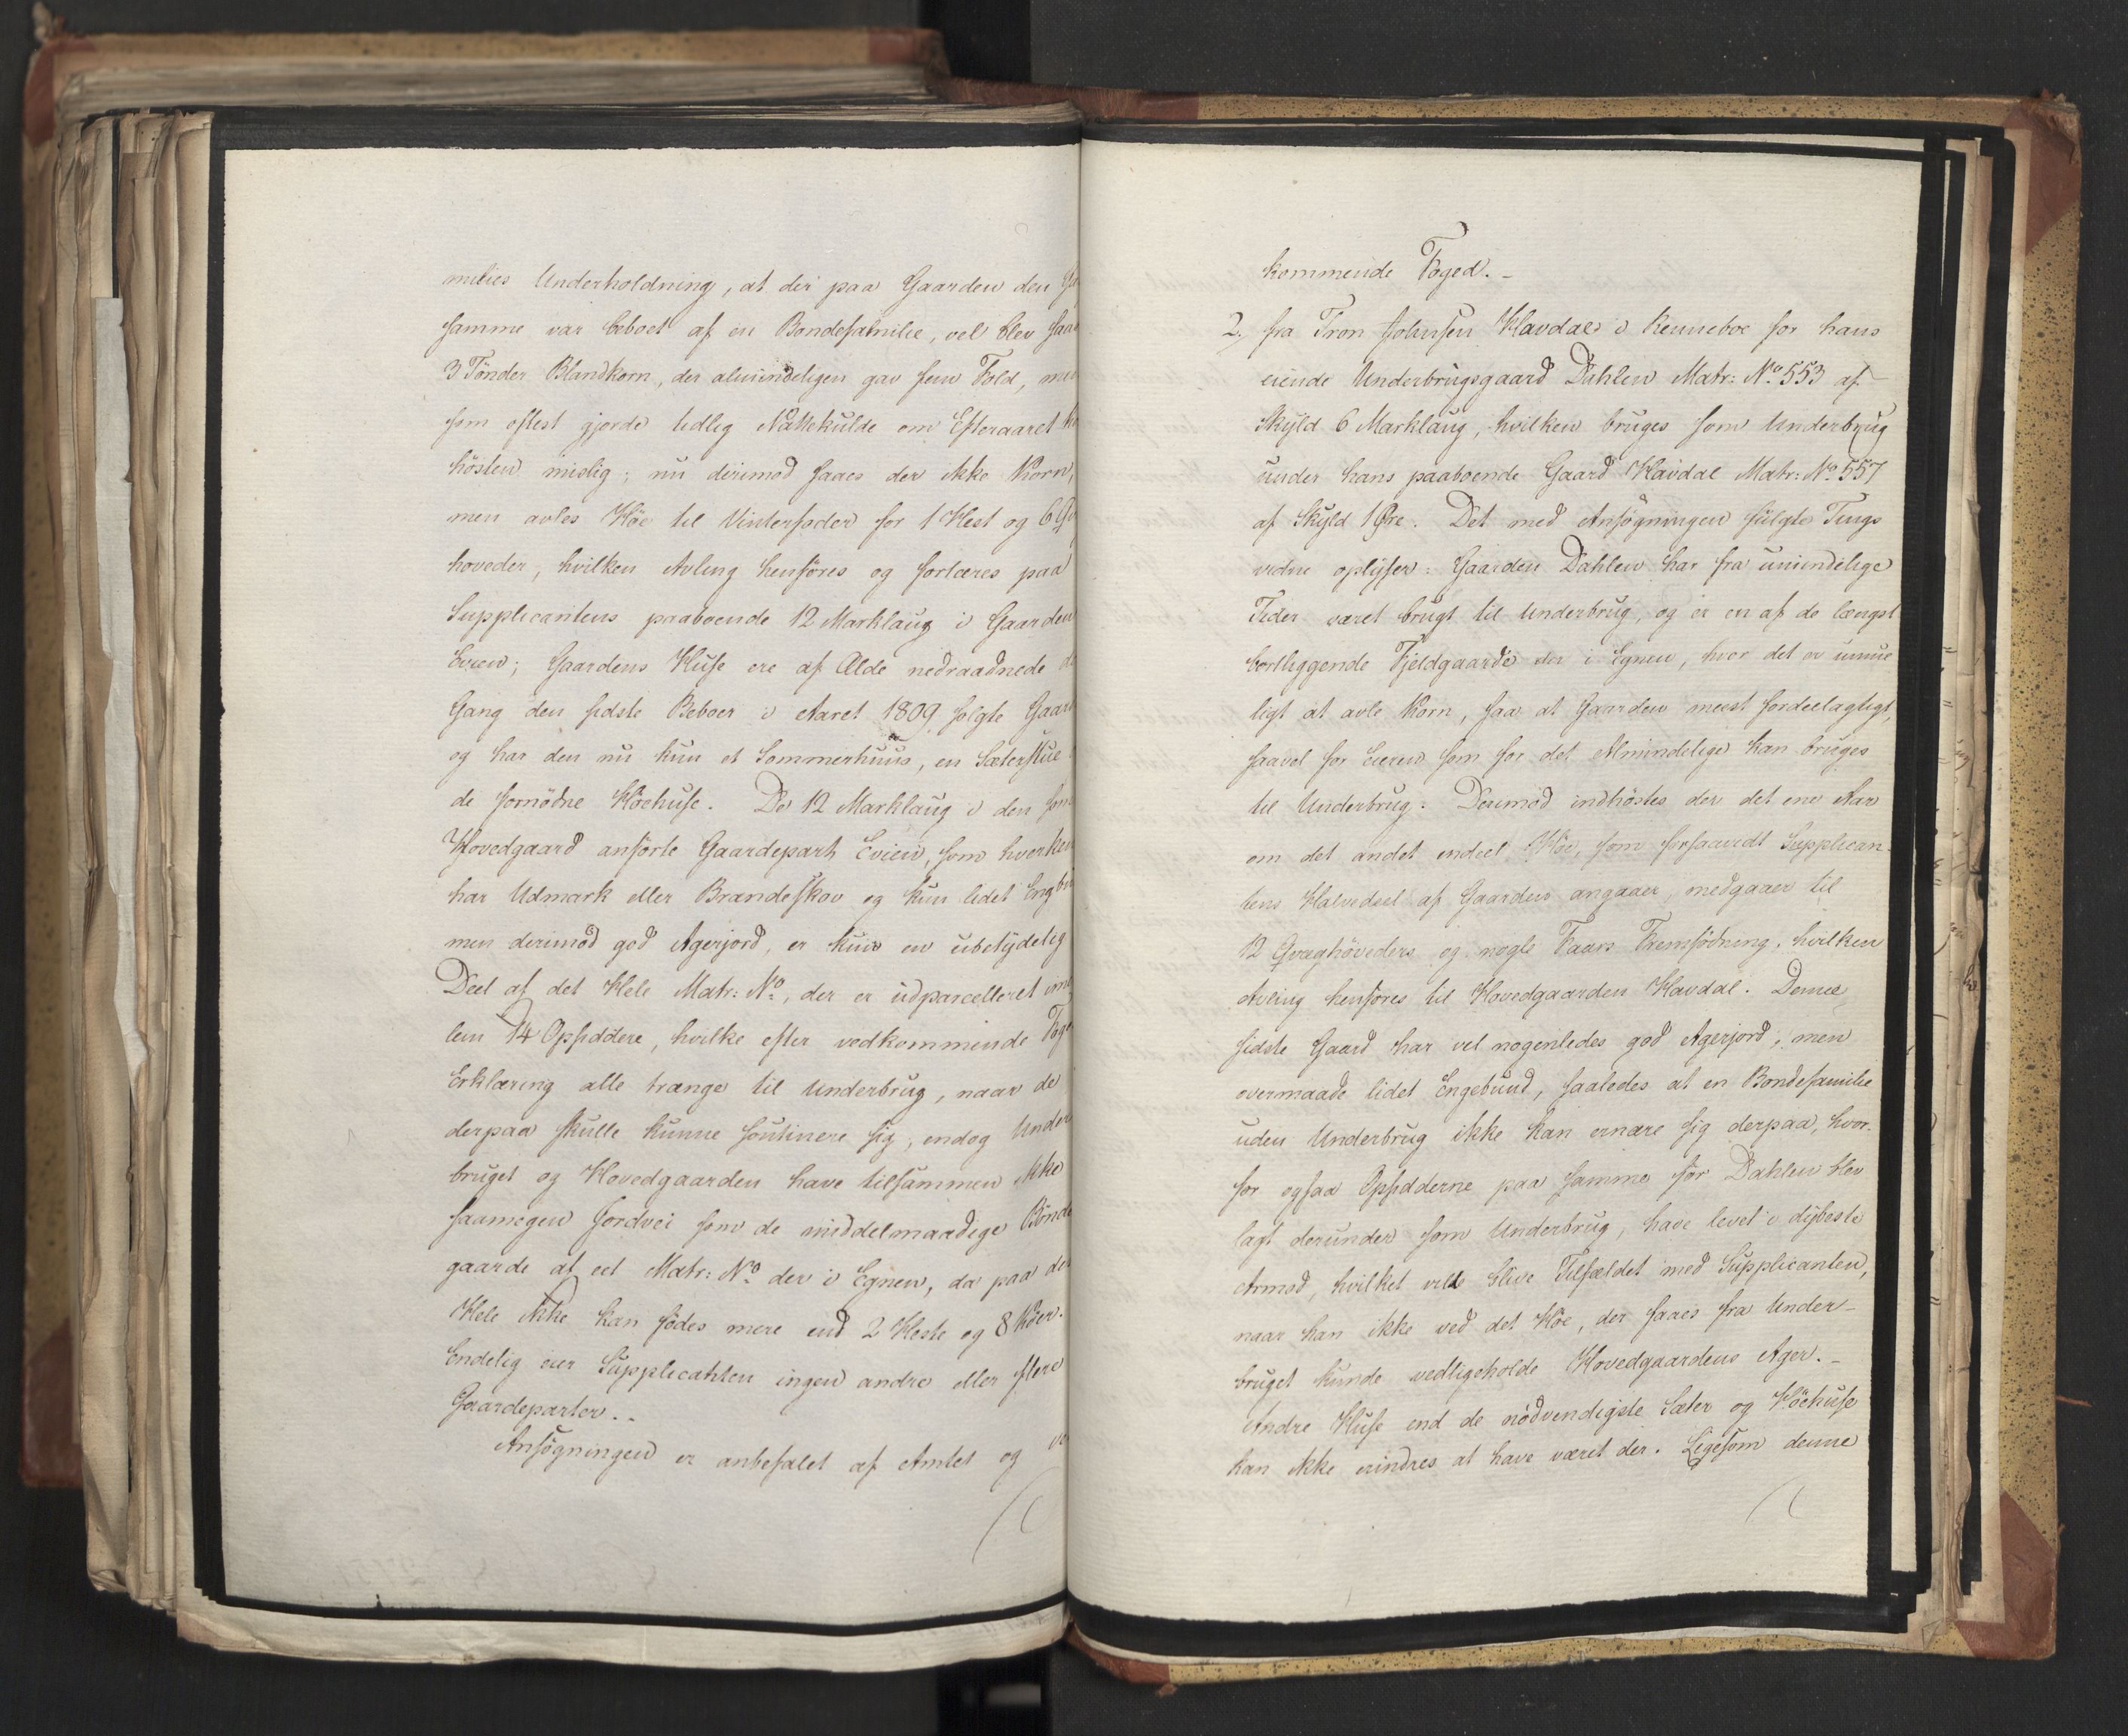 milies Underholdning, at der paa Gaarden den
samme var beboet af en Bondefamilie, vel blev
3 Tönder Blandkorn, der almindeligen gav fem Fold,
som oftest gjorde tidlig Nattekulde om Efteraaret
hösten mislig; nu derimod saaes der ikke Korn,
men avles Höe til Vinterfoder for 1 Hest og 6
hoveder, hvilken Avling henføres og fortæres paa
Supplicantens paaboende 12 Marklaug i Gaarden
Evien; Gaardens Huse ere af Ælde nedraadnede
Gang den sidste Beboer i Aaret 1809 solgte
og har den nu kun et Sommerhuus, en Sæterstue
de fornödne Höehuse. De 12 Marklaug i den
Hovedgaard anförte Gaardepart Evien, som hverken
har Udmark eller Brændeskov og kun lidet
men derimod god Agerjord, er kun en ubetydelig
Deel af det Hele Matr: No, der er udparcelleret
lem 14 Opsiddere, hvilke efter vedkommende
Erklæring alle trænge til Underbrug, naar de
derpaa skulle kunne soutinere sig, endog Under
bruget og Hovedgaarden have tilsammen ikke
saamegen Jordvei som de middelmaadige Bönde
gaarde af eet Matr: No der i Egnen, da paa det
Hele ikke kan födes mere end 2 Heste og 8 Köer.
Endelig eier Supplicanten ingen andre eller flere
Gaardeparter..
Ansögningen er anbefalet af Amtet og
kommende Foged. -
2. fra Tron Johnsen Havdal i Renneboe for hans
eiende Underbrugsgaard Dahlen Matr: No 553 af
Skyld 6 Marklaug, hvilken bruges som Underbrug
under hans paaboende Gaard Havdal Matr: No 557
af Skyld 1 Øre. Det med Ansögningen fulgte Tings
vidne oplyser: Gaarden Dahlen har fra umindelige
Tider været brugt til Underbrug, og er en af de længst
bortliggende Fjeldgaarde der i Egnen, hvor det er umue
ligt at avle Korn, saa at Gaarden meest fordeelagtigt,
saavel for Eieren som for det Almindelige kan bruges
til Underbrug. Derimod indhöstes der det ene Aar
om det andet endeel Höe, som forsaavidt Supplican-
tens Halvedeel af Gaarden angaaer, medgaaer til
12 Qvæghöveders og nogle Faars Fremfödning, hvilken
Avling henføres til Hovedgaarden Havdal. Denne
sidste Gaard har vel nogenledes god Agerjord; men
overmaade lidet Engebund, saaledes at en Bondefamilie
uden Underbrug ikke kan ernære sig derpaa, hvor-
for ogsaa Opsidderne paa samme för Dahlen blev
lagt derunder som Underbrug, have levet i dybeste
Armod, hvilket vilde blive Tilfældet med Supplicanten,
naar han ikke ved det Höe, der faaes fra Under-
bruget kunde vedligeholde Hovedgaardens Ager. -
Andre Huse end de nödvendigste Sæter og Höehuse
kan ikke erindres at have været der. Ligesom denne